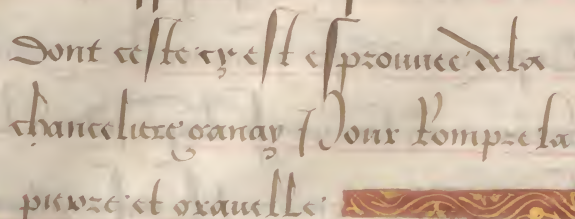 Dont ceste cy est esprouuee de la
chanceliere ganay / Pour Rompre la
pierre et grauelle